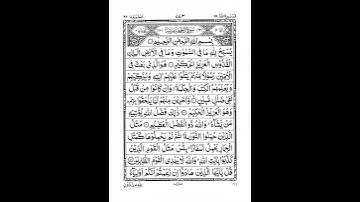 بِسْمِ اللّٰهِ الرَّحْمٰنِ الرَّحِيْمِ
يُسَبِّحُ لِلّٰهِ مَا فِي السَّمٰوٰتِ وَمَا فِي الْاَرْضِ الْمَلِكِ
الْقُدُّوْسِ الْعَزِيْزِ الْحَكِيْمِ ۝ هُوَ الَّذِيْ بَعَثَ فِي
الْاُمِّيّٖنَ رَسُوْلًا مِّنْهُمْ يَتْلُوْا عَلَيْهِمْ اٰيٰتِهٖ وَيُزَكِّيْهِمْ
وَيُعَلِّمُهُمُ الْكِتٰبَ وَالْحِكْمَةَ وَاِنْ كَانُوْا مِنْ قَبْلُ
لَفِيْ ضَلٰلٍ مُّبِيْنٍ ۝ وَّاٰخَرِيْنَ مِنْهُمْ لَمَّا يَلْحَقُوْا بِهِمْ
وَهُوَ الْعَزِيْزُ الْحَكِيْمُ ۝ ذٰلِكَ فَضْلُ اللّٰهِ يُؤْتِيْهِ
مَنْ يَّشَآءُ وَاللّٰهُ ذُو الْفَضْلِ الْعَظِيْمِ ۝ مَثَلُ
الَّذِيْنَ حُمِّلُوا التَّوْرٰىةَ ثُمَّ لَمْ يَحْمِلُوْهَا كَمَثَلِ
الْحِمَارِ يَحْمِلُ اَسْفَارًا بِئْسَ مَثَلُ الْقَوْمِ الَّذِيْنَ
كَذَّبُوْا بِاٰيٰتِ اللّٰهِ وَاللّٰهُ لَا يَهْدِي الْقَوْمَ الظّٰلِمِيْنَ ۝
قُلْ يٰٓاَيُّهَا الَّذِيْنَ هَادُوْٓا اِنْ زَعَمْتُمْ اَنَّكُمْ اَوْلِيَآءُ